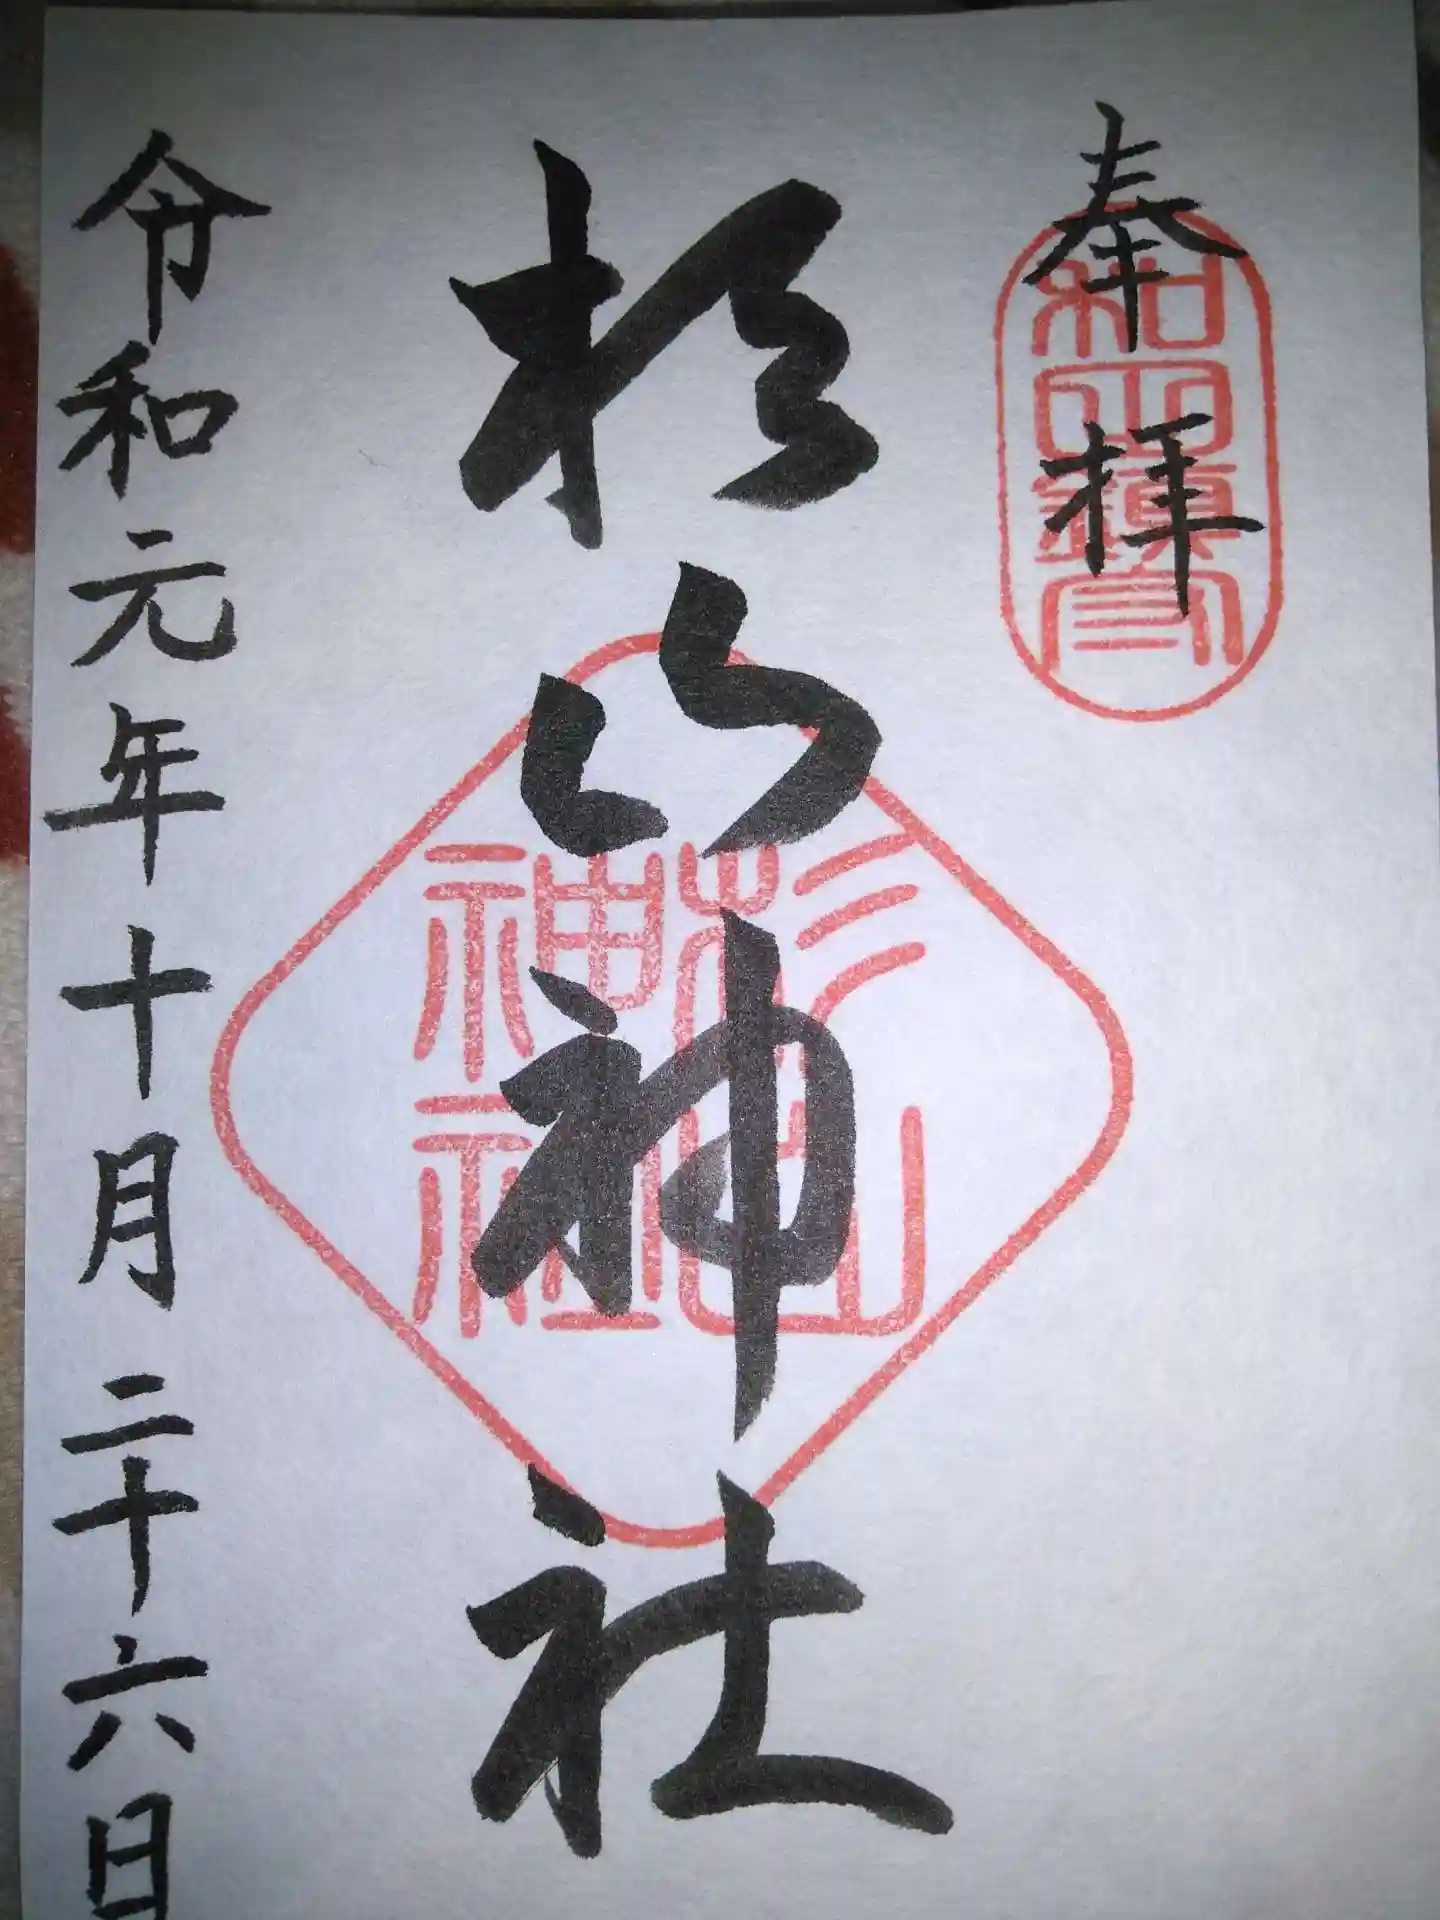 奉拝
和田鎮守
杉山神社
杉山
神社
令和元年十月二十六日